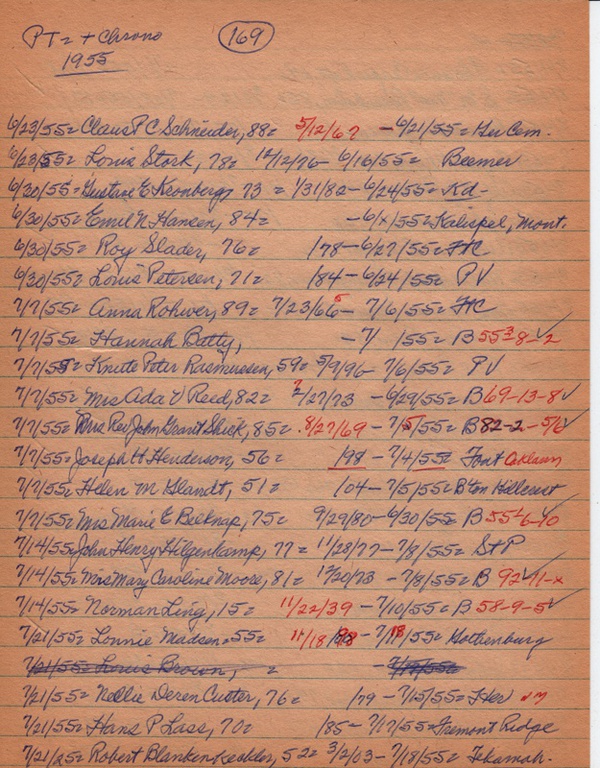 PT= + Chrono 169
1955
6/23/55= Claus P C Schneider, 88= 5/12/67 - 6/21/55= Her Cem.
6/23/55= Louis Stork, 78= 12/12/76 - 6/16/55= Beemer
6/30/55= Gustave E Kronberg, 73 = 1/31/82 - 6/24/55= Kd-
6/30/55= Emil N Hansen, 84= - 6/x/55= Kalispel, Mont.
6/30/55= Roy Slader, 76= /78 - 6/27/55= FtC
6/30/55= Louis Petersen, 71= /84 - 6/24/55= PV
7/7/55= Anna Rohwer, 89= 7/23/66 5 - 7/6/55= FtC
7/7/55= Hannah Batty, - 7/ /55= B 55-8-2 ✓
7/7/55= Knute Peter Rasmussen, 59= 5/9/96 - 7/6/55= PV
7/7/55= Mrs Ada V Reid, 82= ?/27/73 - 6/29/55= B 69-13-8 ✓
7/7/55= Mrs Rev John Grant Shick, 85= 8/27/69 - 7/5/55= B 82-2-5/6 ✓
7/7/55= Joseph H Henderson, 56 /98 - 7/4/55= Font Oaklawn
7/7/55= Helen M Glandt, 51= /04 - 7/5/55= Hillcrest
7/7/55= Mrs Marie E Belknap, 75= 9/29/80 - 6/30/55= B 55-6-10 ✓
7/14/55= John Henry Hilgenkamp, 77 = 11/28/77 - 7/8/55= St P
7/14/55= Mrs Mary Caroline Moore, 81= 12/20/73 - 7/8/55= B 92-11-x ✓
7/14/55= Norman Ling, 15= 11/22/39 - 7/10/55= B 58-9-5 ✓
7/21/55= Lonnie Madsen= 55= 11/18/98 - 7/18/55= Gothenburg
7/21/55= Louis Brown, = - 7/17/55=
7/21/55= Nellie Deren Cutter, 76= /79 - 7/15/55= Her
7/21/55= Hans P Lass, 70= /85 - 7/17/55= Fremont Ridge
7/21/25= Robert Blankenkeckler, 52= 3/2/03 - 7/18/55= Tekamah.